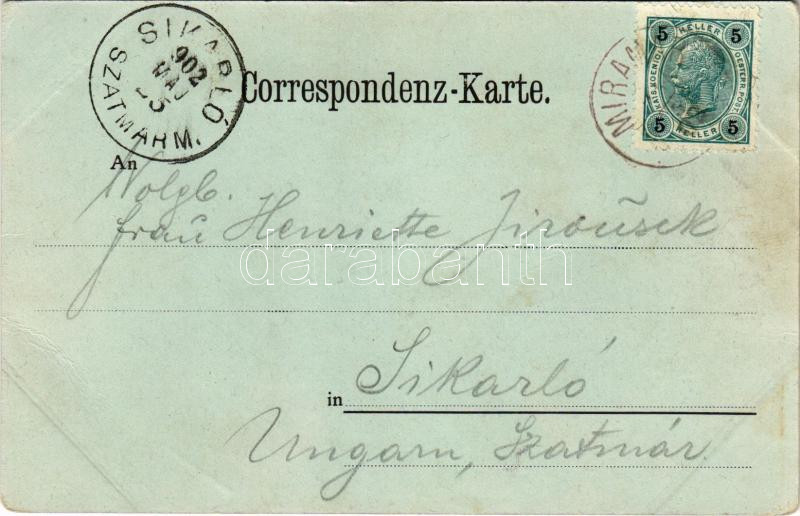 SIKARLÓ
902
MAJ
SZATMÁRM.
Correspondenz-Karte.
MIRAM
5 HELLER 5
KAIS. KOENIGL. OESTERR. POST.
5 HELLER 5
An
Wolgb.
Frau Henriette Jiroušek
darabanth
in Sikarló
Ungarn, Szatmár.